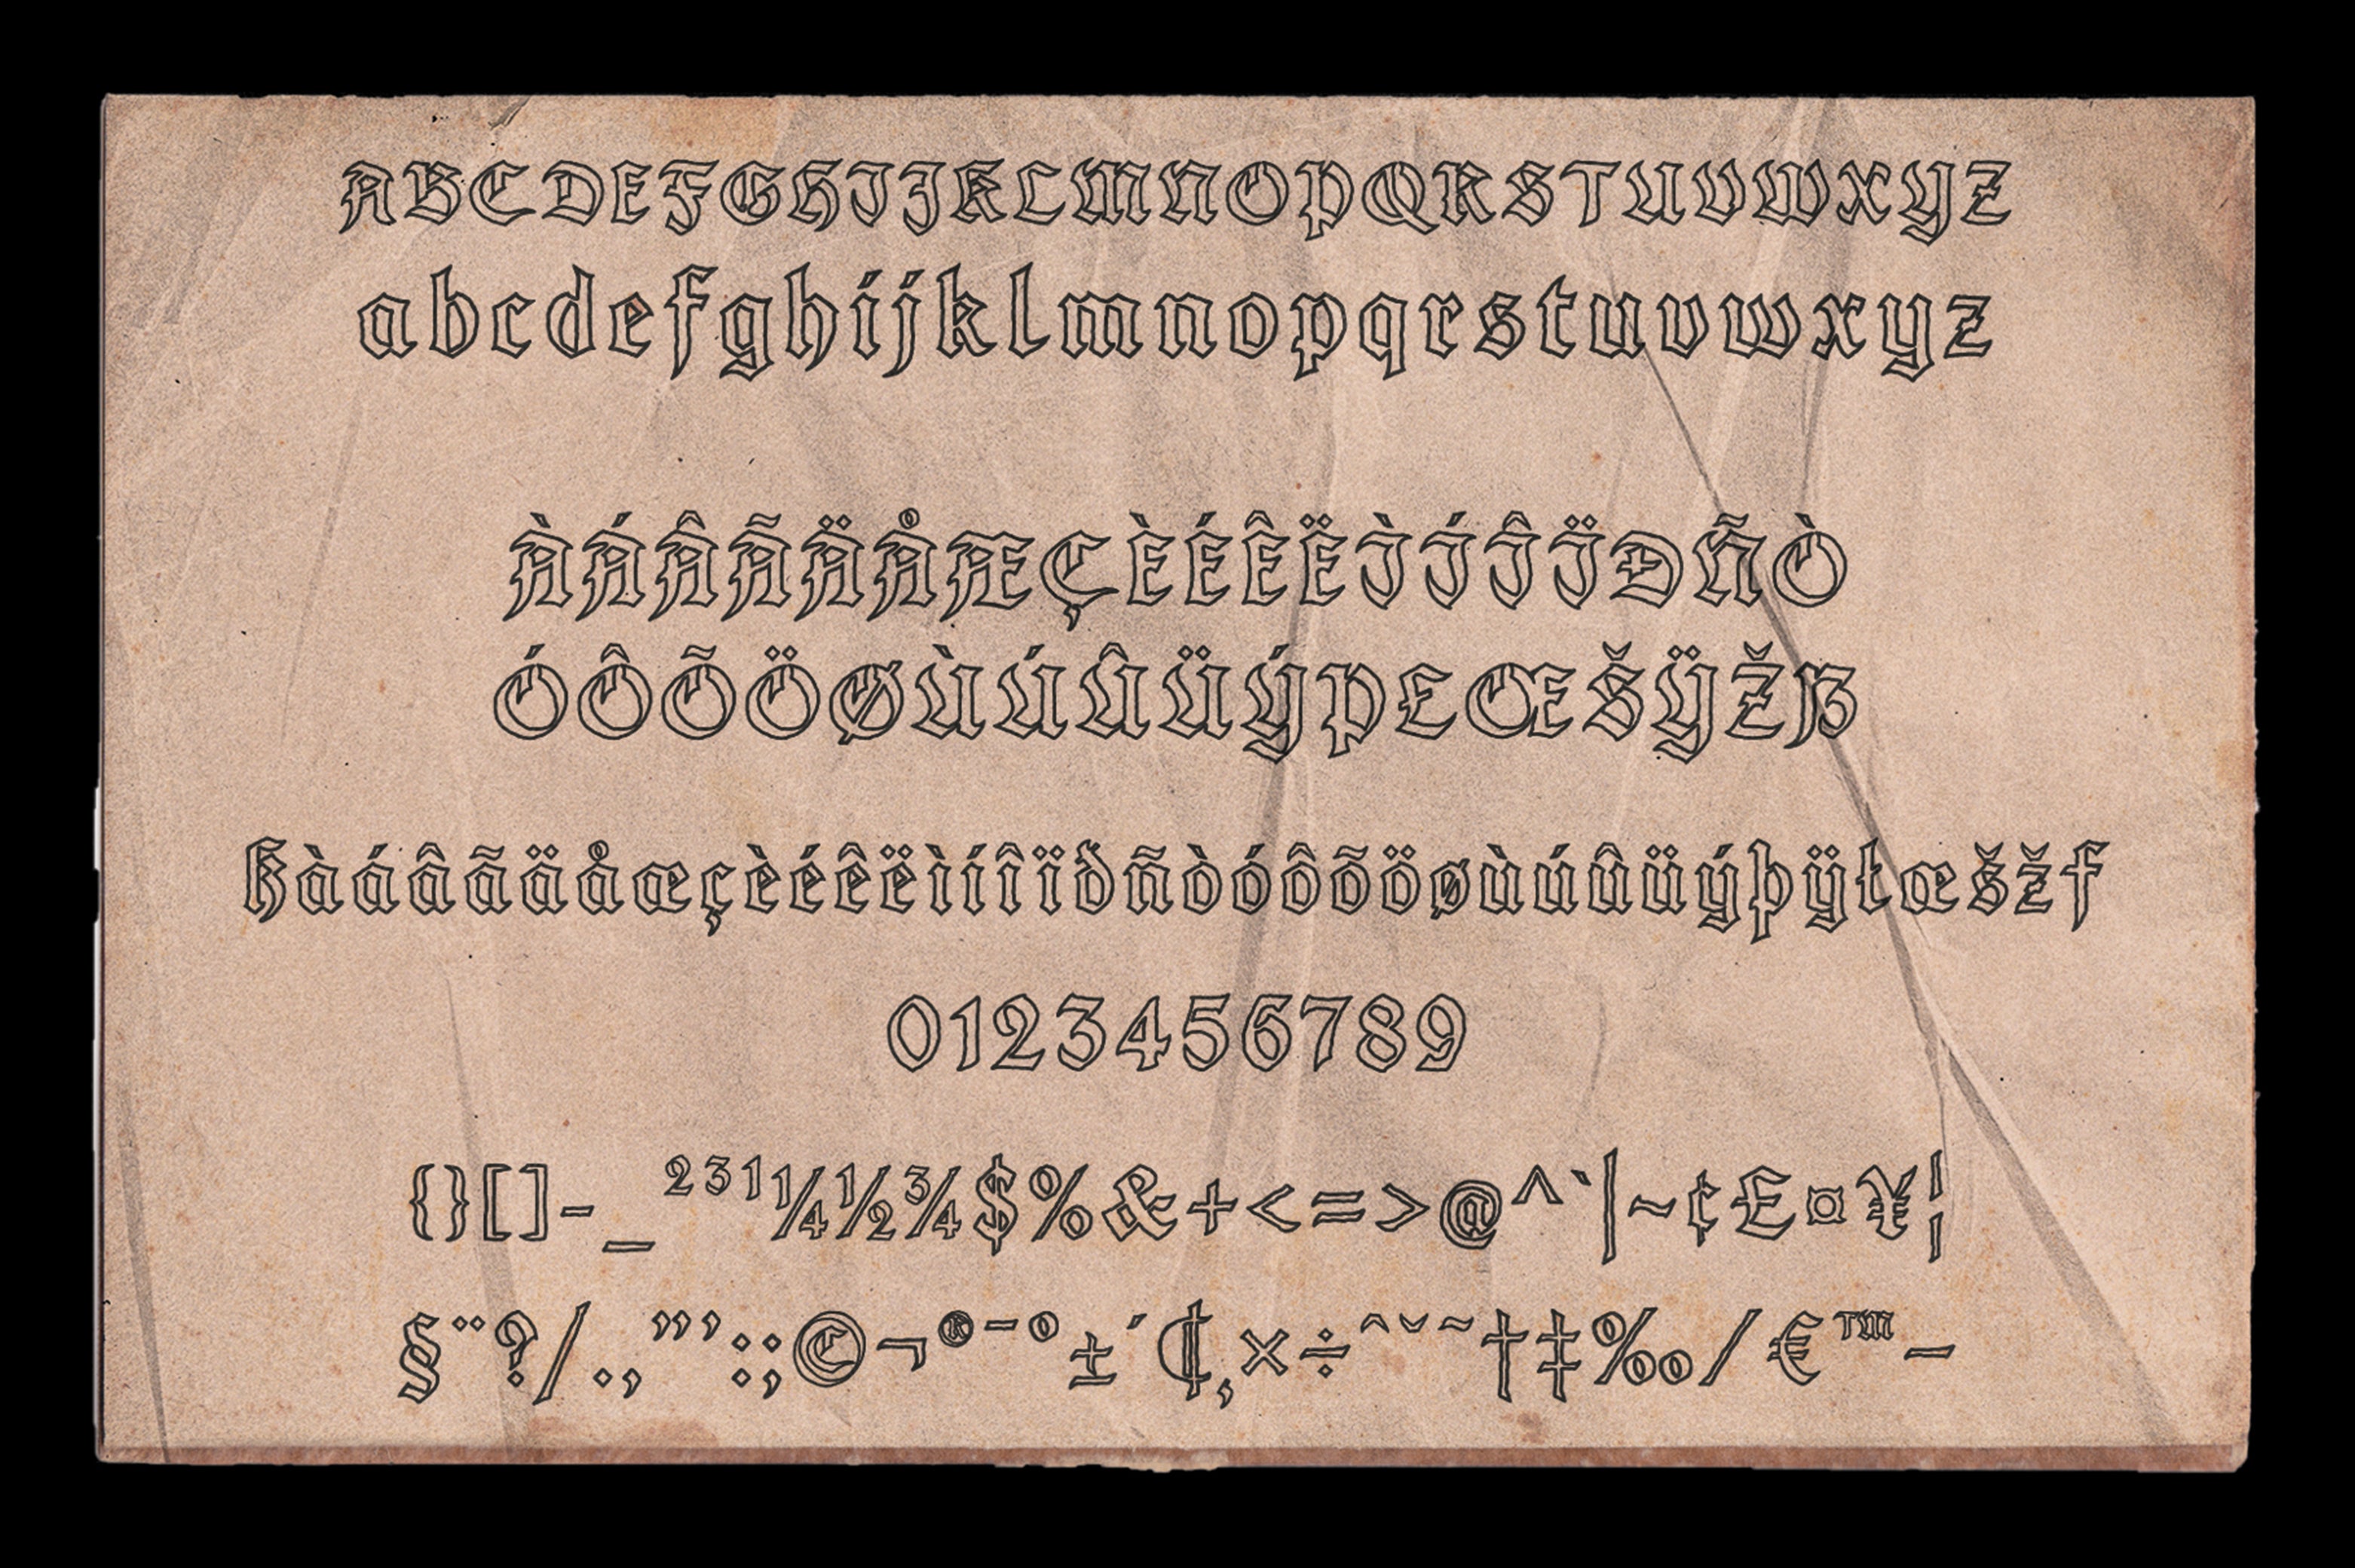 ABCDEFGHIJKLMNOPQRSTUVWXYZ
abcdefghijklmnopqrstuvwxyz
ÀÁÂÃÄÅÆÇÈÉÊËÌÍÎÏÐÑÒ
ÓÔÕÖØÙÚÛÜÝÞŁŒŠŸŽẞ
ßàáâãäåæçèéêëìíîïðñòóôõöøùúûüýþÿłœšžƒ
0123456789
{}[]-_²³¹¼½¾$%&+<=>@^`|~¢£¤¥¦
§¨?/.,”’:;©¬®¯°±´¶¸×÷ˆˇ˜†‡‰⁄€™−